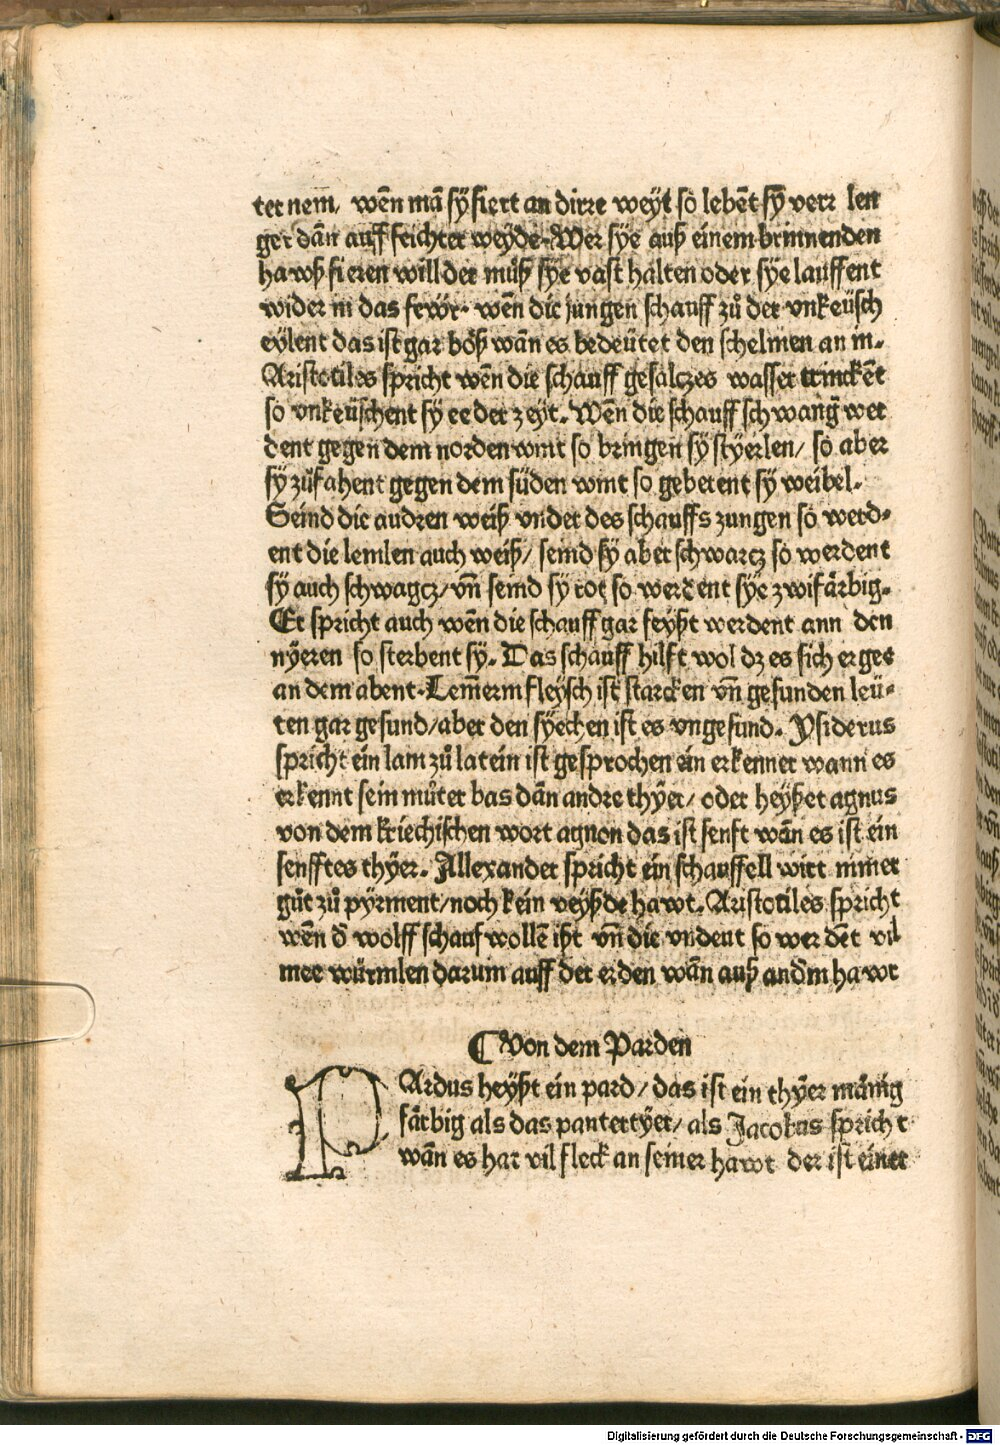 ter nem, wēn mā sy fiert an dirre weyt so lebēt sȳ verr len
ger dān auff feichter weyde. Wer sye auß einem brinnenden
hawß fieren will der můß sye vast halten oder sye lauffent
wider in das fewr. wēn die jungen schauff zů der vnkeüsch
eylent das ist gar böß wān es bedeütet den schelmen an in.
Aristotiles spricht wēn die schauff gesalczes wasser trinckēt
so vnkeüschent sy ee der zeyt. Wēn die schauff schwang̈ wer
dent gegen dem norden wint so bringen sy styerlen/ so aber
sy zůfahent gegen dem süden wint so geberent sy weibel.
Seind die audren weiß vnder des schauffs zungen so werd-
ent die lemlen auch weiß/ seind sy aber schwarcz so werdent
sy auch schwagcz/ vn̄ seind sy rot so werdent sye zwifärbig.
Er spricht auch wēn die schauff gar feyßt werdent ann den
nÿeren so sterbent sy. Das schauff hilft wol dz es sich erges
an dem abent. Lem̄erin fleysch ist starcken vn̄ gesunden leü-
ten gar gesund/ aber den syechen ist es vngesund. Ysiderus
spricht ein lam zů latein ist gesprochen ein erkenner wann es
erkennt sein můter bas dān andre thÿer/ oder heyßet agnus
von dem kriechischen wort agnon das ist senft wān es ist ein
senfftes thÿer. Allexander spricht ein schauffell wirt nimer
gůt zů pyrment/ noch kein reyßde hawt. Aristotiles spricht
wēn d̄ wolff schauf wollē ißt vn̄ die vndeut so werdēt vil
mee würmlen darum auff der erden wān auß and̄m hawt
Von dem Parden
PArdus heyßt ein pard/ das ist ein thÿer mānig
färbig als das pantertÿer/ als Jacobus spricht
wān es hat vil fleck an seiner hawt der ist einer
Digitalisierung gefördert durch die Deutsche Forschungsgemeinschaft - DFG